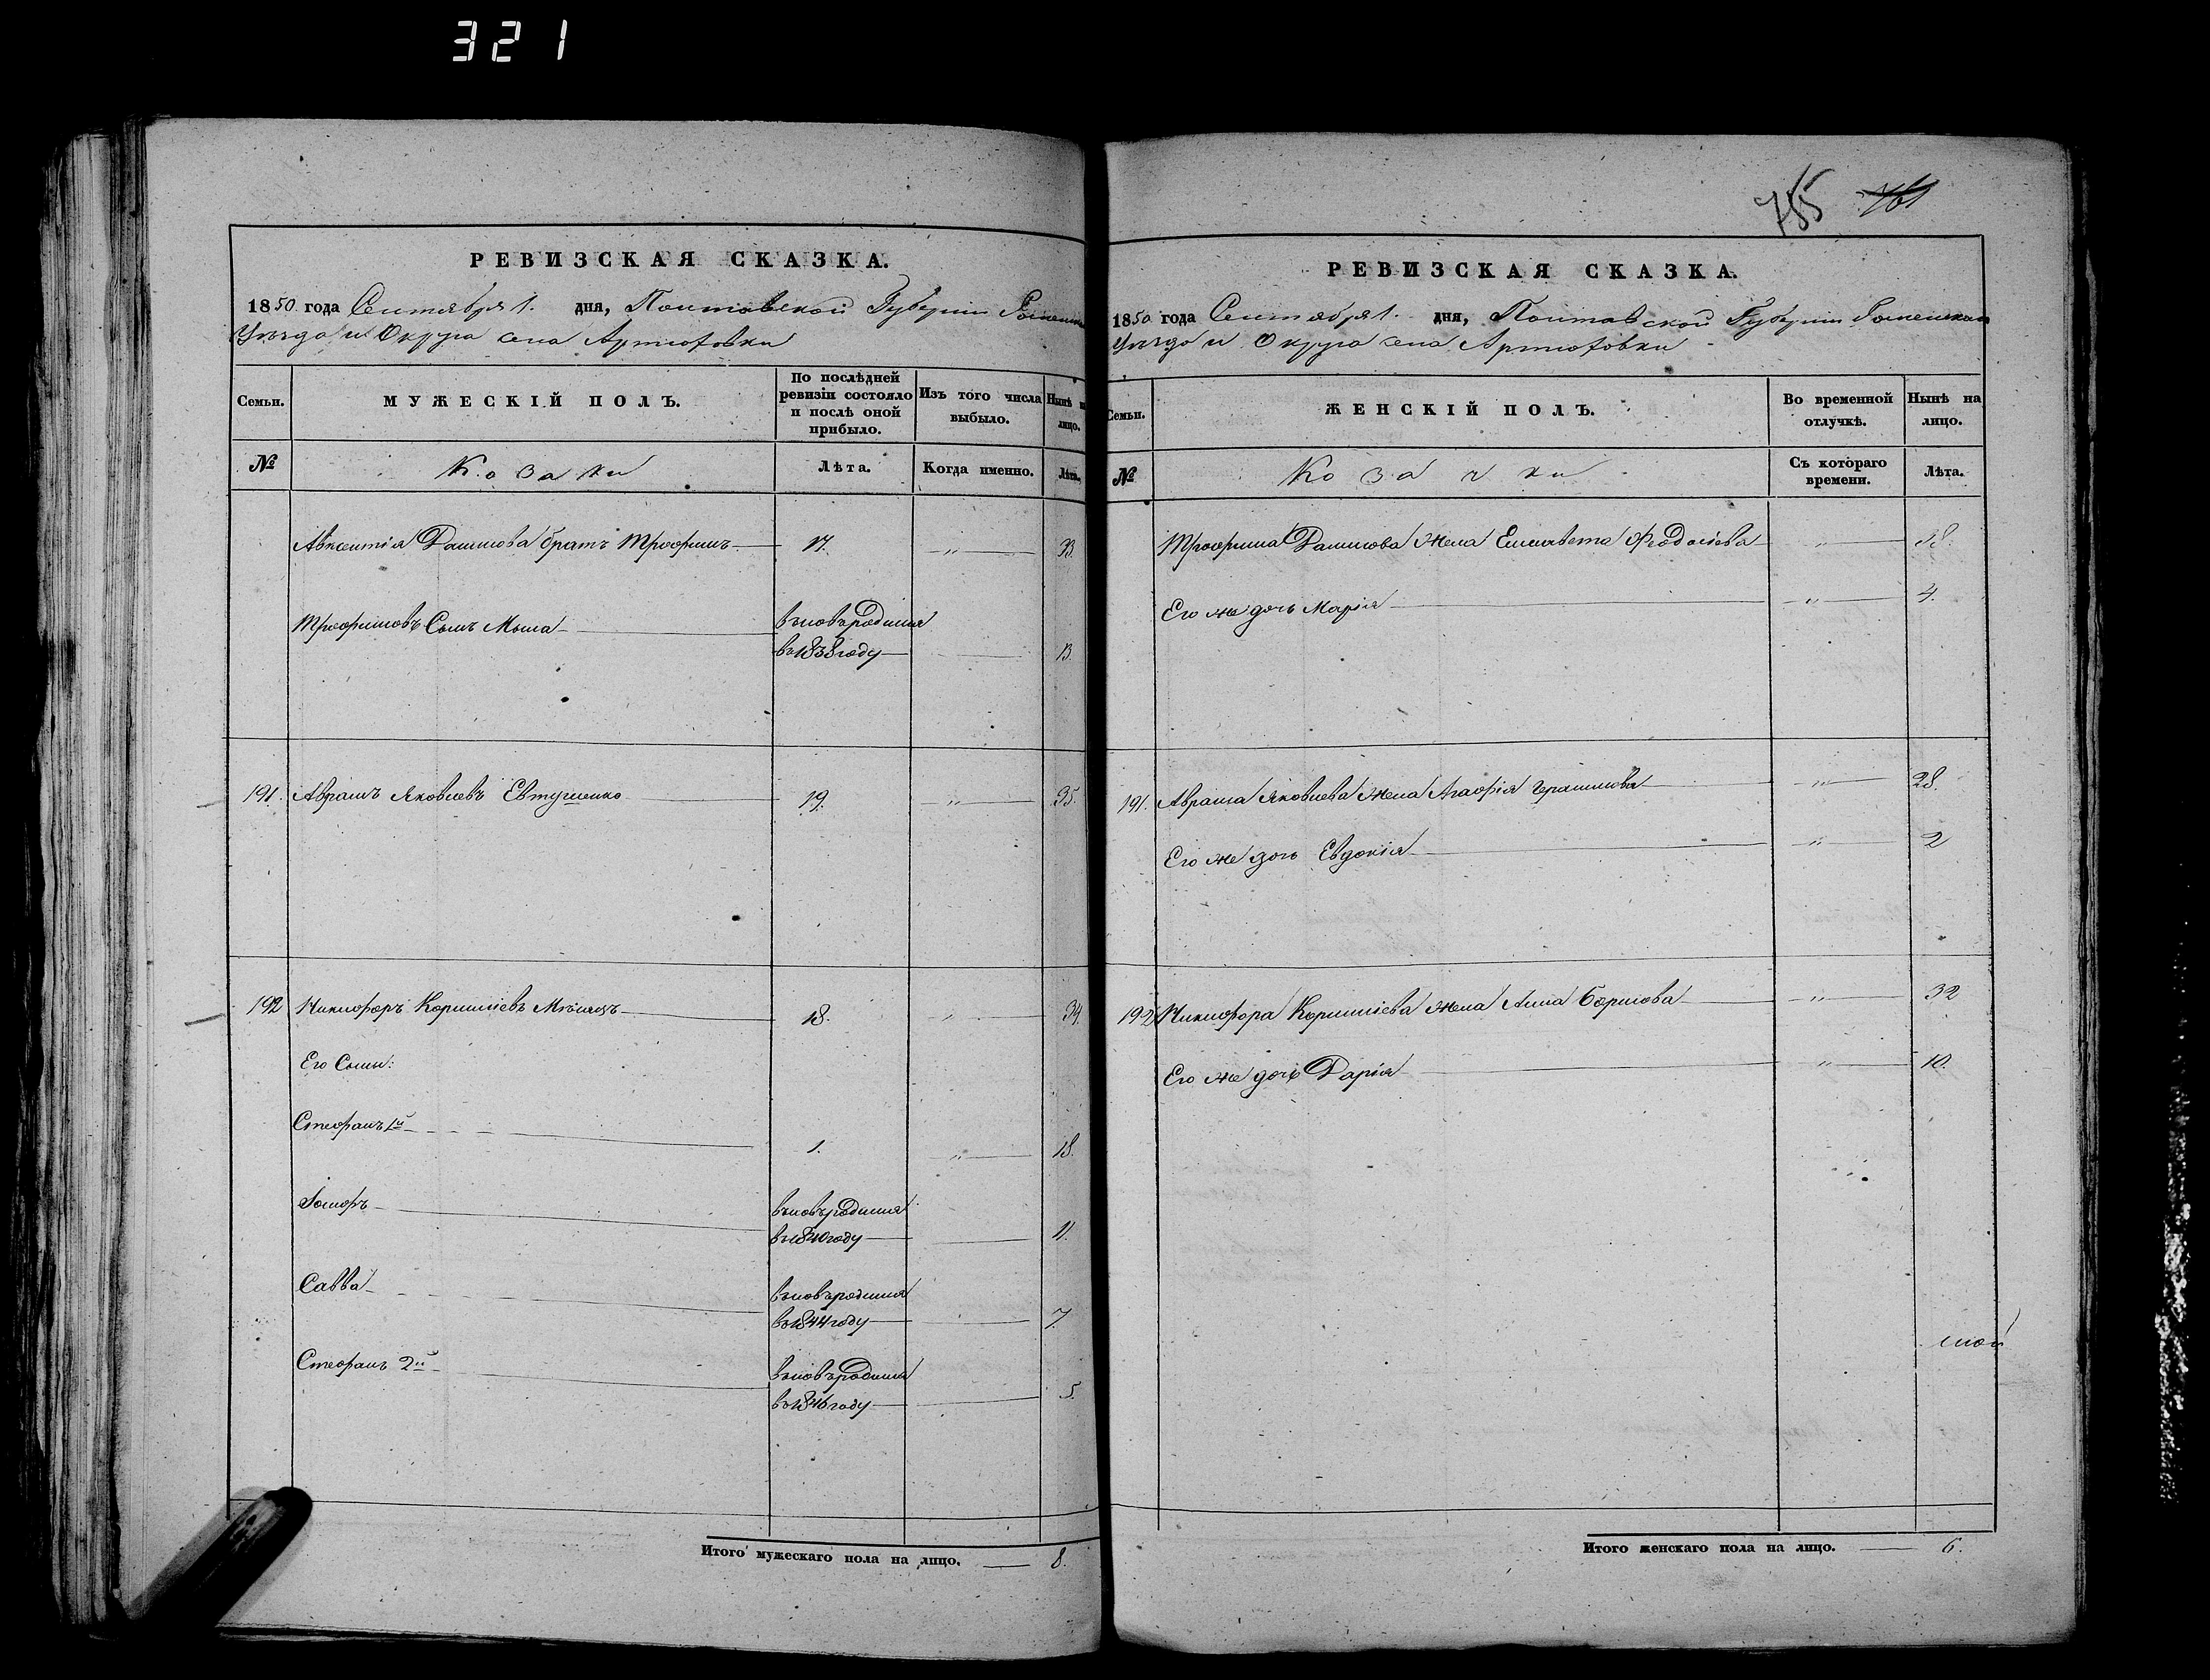 321
РЕВИЗСКАЯ СКАЗКА.
1850 года Сентября 1. дня, Полтавской Губерніи Роменскаго
Уѣзда и Округа села Артюховки
Семьи. МУЖЕСКІЙ ПОЛЪ. По послѣдней ревизіи состояло и послѣ оной прибыло. Изъ того числа выбыло. Нынѣ на лицо.
№ Козаки Лѣта. Когда именно. Лѣта.
Авксентія Данилова братъ Трофимъ 17. " 33.
Трофимовъ Сынъ Илья вновьродился
въ 1838 году 13.
191. Аврамъ Яковлевъ Евтушенко 19. " 35.
192 Никифоръ Корниліевъ 18. " 34.
Его Сыны:
Стефанъ 1й 1. " 18.
вновьродился
въ 1840 году 11.
Савва вновьродился
въ 1844 году 7.
Стефанъ 2й вновьродился
въ 1846 году 5.
Итого мужескаго пола на лицо. 8.
755 761
РЕВИЗСКАЯ СКАЗКА.
1850 года Сентября 1. дня, Полтавской Губерніи Роменскаго
Уѣзда и Округа села Артюховки
Семьи. ЖЕНСКІЙ ПОЛЪ. Во временной отлучкѣ. Нынѣ на лицо.
№ Козачки Съ котораго времени. Лѣта.
Трофима Данилова жена Елисавета Феодосіева " 38.
Его же дочь Марія " 4.
191. Аврама Яковлева жена Агафія Герасимова " 28.
Его же дочь Евдокія " 2
192 Никифора Корниліева жена Анна Борисова " 32
Его же дочь Дарія " 10.
Итого женскаго пола на лицо. 6.